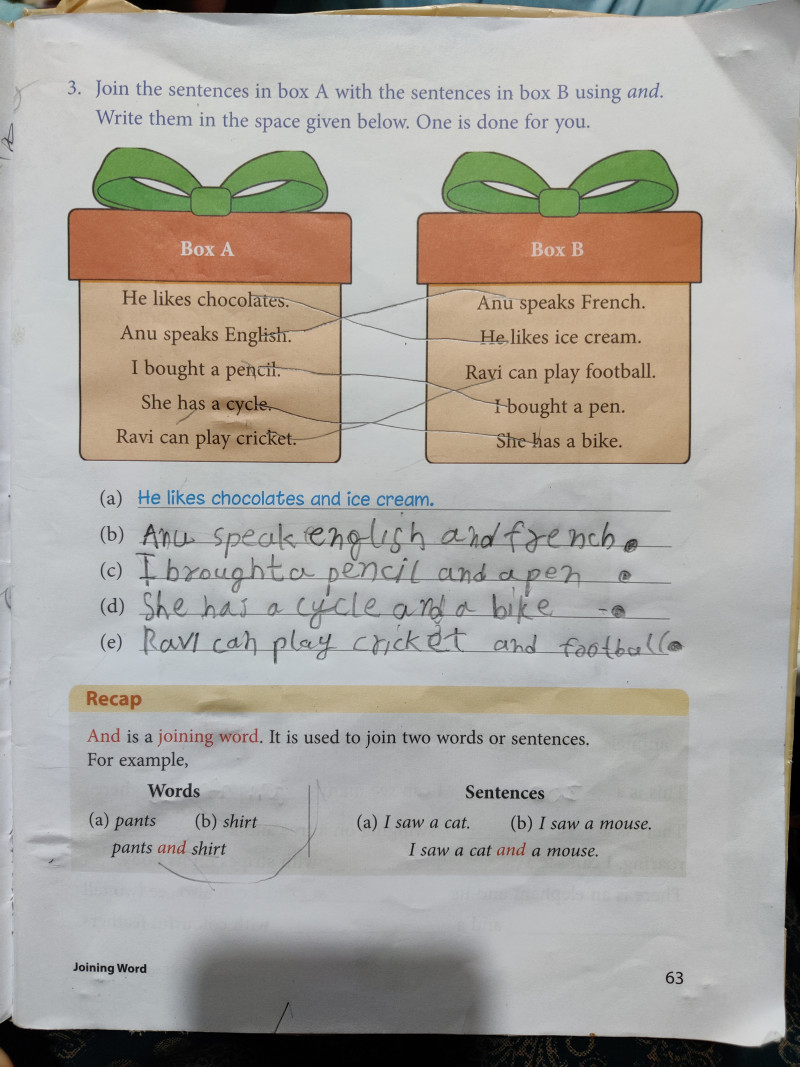 3. Join the sentences in box A with the sentences in box B using and.
Write them in the space given below. One is done for you.
Box A
He likes chocolates.
Anu speaks English.
I bought a pencil.
She has a cycle.
Ravi can play cricket.
Box B
Anu speaks French.
He likes ice cream.
Ravi can play football.
I bought a pen.
She has a bike.
(a) He likes chocolates and ice cream.
(b) Anu speak english and french.
(c) I brought a pencil and a pen .
(d) She has a cycle and a bike -.
(e) Ravi can play cricket and football.
Recap
And is a joining word. It is used to join two words or sentences.
For example,
Words
(a) pants (b) shirt
pants and shirt
Sentences
(a) I saw a cat. (b) I saw a mouse.
I saw a cat and a mouse.
Joining Word
63